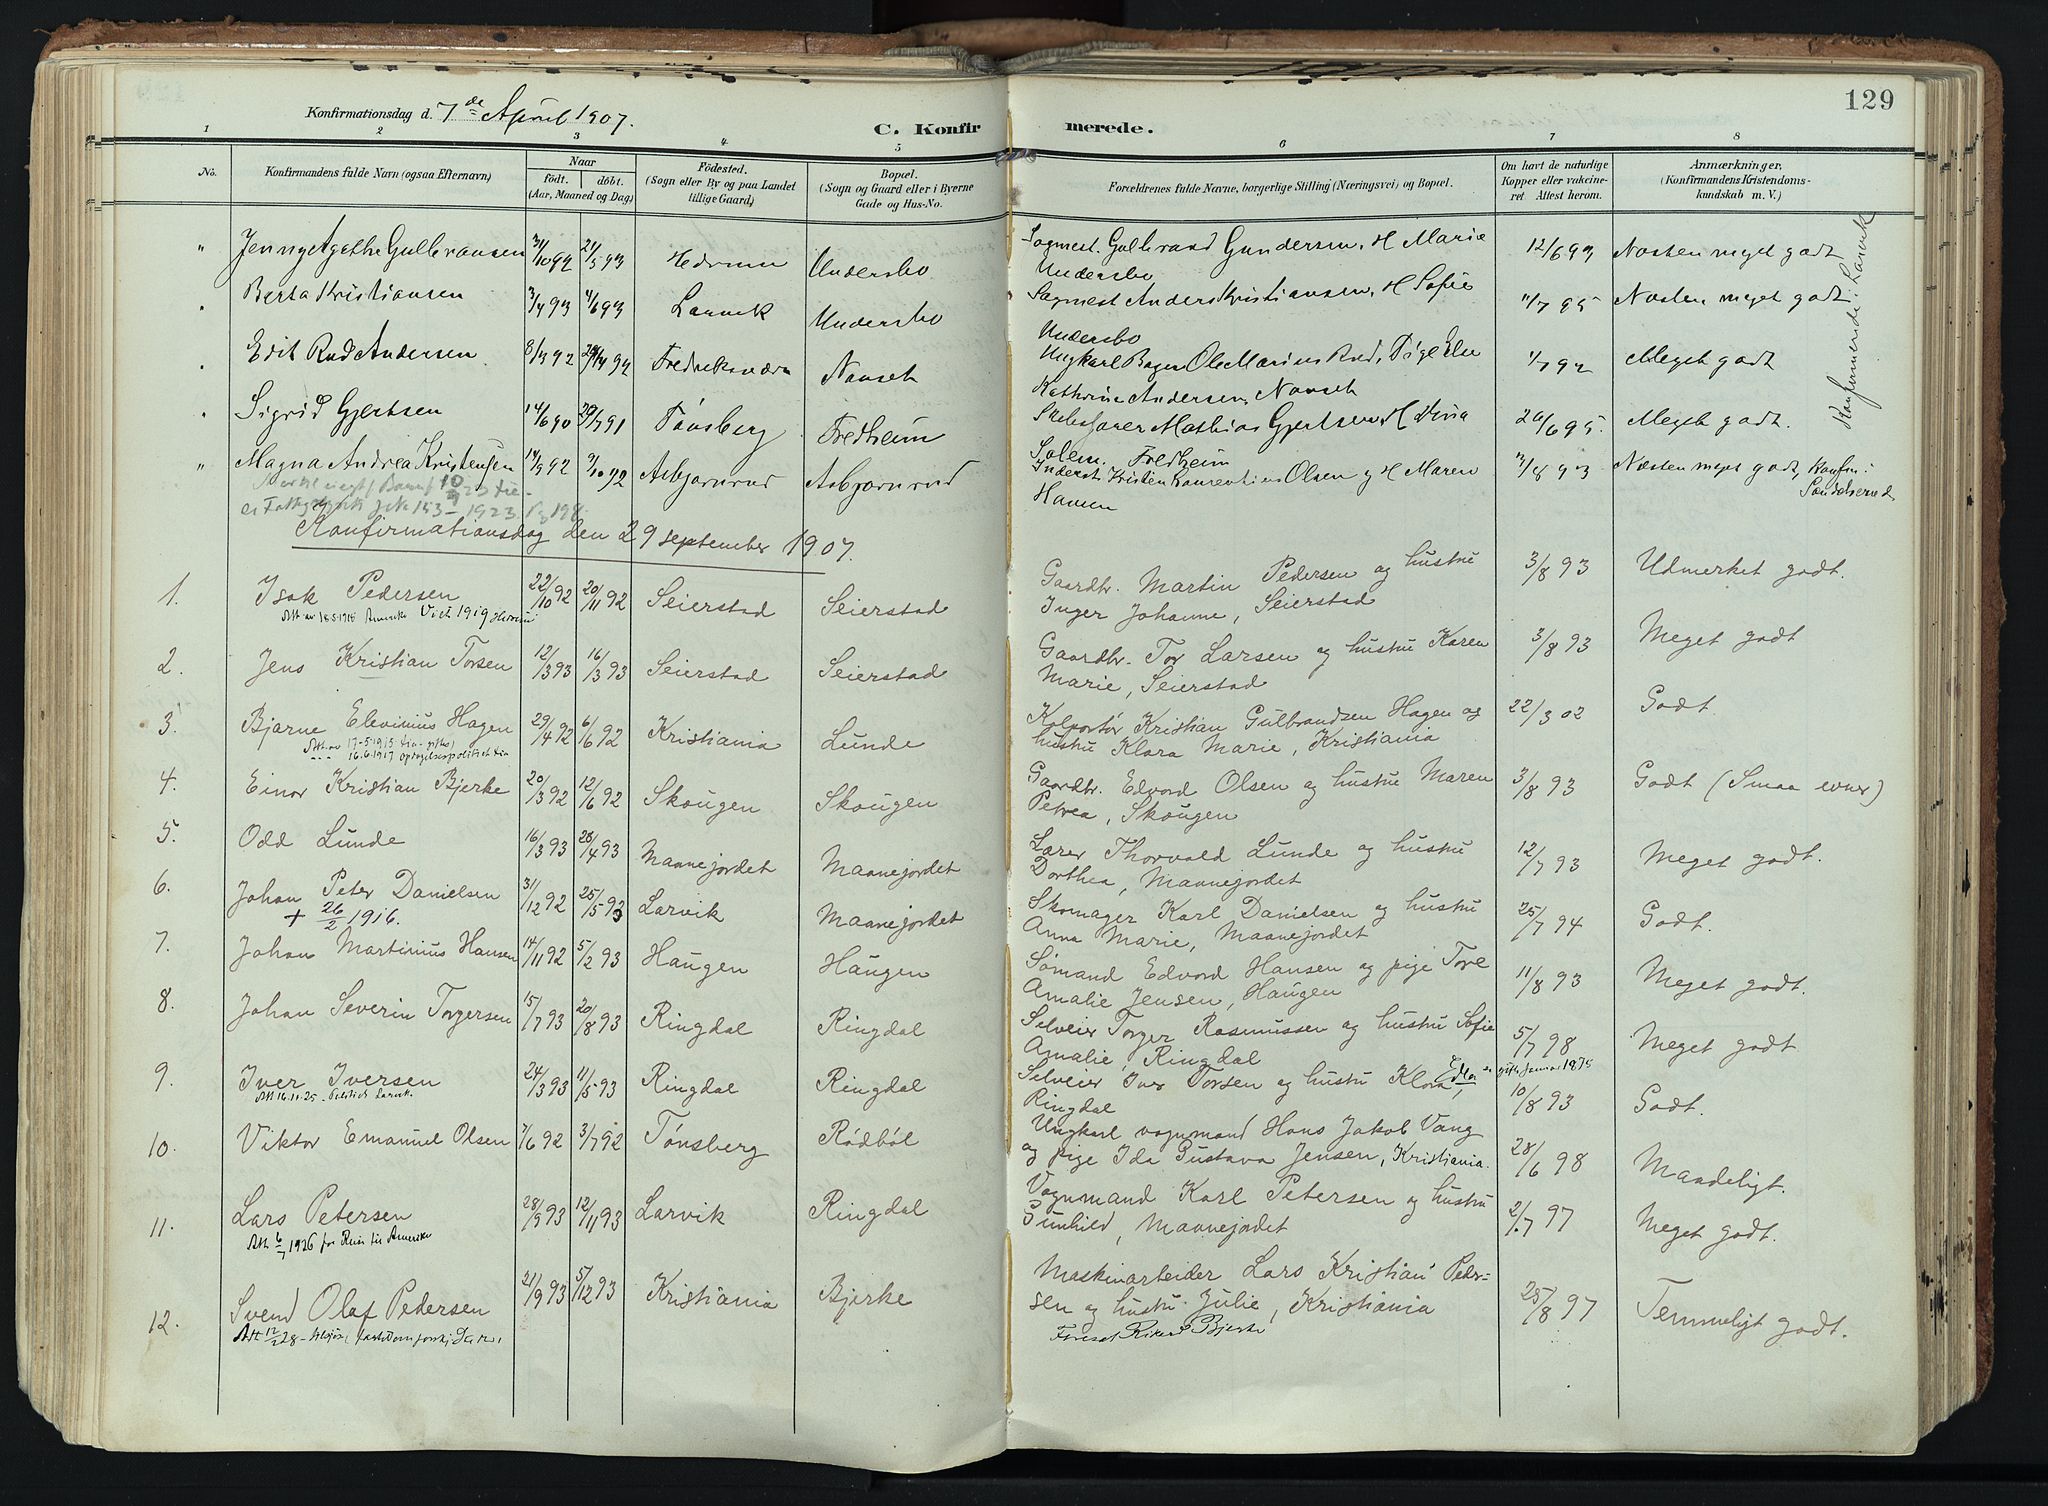 129
Konfirmationsdag d. 7de April 1907.
C. Konfirmerede.
1 2 3 4 5 6 7 8
No. Konfirmandens fulde Navn (ogsaa Efternavn) Naar födt. döbt. (Aar, Maaned og Dag) Födested. (Sogn eller By og paa Landet tillige Gaard) Bopæl. (Sogn og Gaard eller i Byerne Gade og Hus-No. Forældrenes fulde Navne, borgerlige Stilling (Næringsvei) og Bopæl. Om havt de naturlige Kopper eller vakcineret. Attest herom. Anmærkninger, (Konfirmandens Kristendomskundskab m. V.)
" Jenny Agathe Gulbransen 31/10 92 21/5 93 Hedrum Undersbo Sagmest. Gulbrand Gundersen, H Marie 12/6 93 Næsten meget godt
Undersbo
" Berta Kristiansen 3/4 93 4/6 93 Larvik Undersbo Sagmest Anders Kristiansen, H Sofie 11/7 95 Næsten meget godt
Undersbo
Konfirmerede i Larvik
" Edit Rud Andersen 8/3 92 Fredriksværn Nanset Ungkarl Bager Ole Marius Rud, Pige Else 1/7 92 Meget godt
Kathrine Andersen, Nanset
" Sigrid Gjertsen 14/6 90 29/3 91 Tönsberg Fredheim Skibsfører Mathias Gjertsen, H Dina 26/6 95. Meget godt.
Solem, Fredheim
" Magna Andrea Kristensen 14/9 92 9/10 92 Asbjørnrud Asbjørnrud Inderst Kristen Laurentius Olsen og H Maren 3/8 93 Næsten meget godt, Konfm: Sandeherred
Hansen
1923 Pg 198
Konfirmationsdag den 29 september 1907.
1. Isak Pedersen 22/10 92 20/11 92 Seierstad Seierstad Gaardbr. Martin Pedersen og hustru 3/8 93 Udmerket godt.
Att av 18.5.1918 Amerika Viet 1919 Hedrum Inger Johanne, Seierstad
2. Jens Kristian Torsen 12/3 93 16/3 93 Seierstad Seierstad Gaardbr. Tor Larsen og hustru Karen 3/8 93 Meget godt
Marie, Seierstad
3. Bjarne Elevinius Hagen 29/4 92 6/6 92 Kristiania Lunde Kolportør Kristian Gulbrandsen Hagen og 22/3 02 Godt.
Att av 17-5-1915 hustru Klara Marie, Kristiania
16.6.1917
4. Einar Kristian Bjerke 20/3 92 12/6 92 Skougen Skougen Gaardbr. Edvard Olsen og hustru Maren 3/8 93 Godt (Smaa evner)
Petrea, Skougen
5. Odd Lunde 16/3 93 28/4 93 Maanejordet Maanejordet Lærer Thorvald Lunde og hustru 12/7 93 Meget godt.
Dorthea, Maanejordet
6. Johan Peter Danielsen 31/12 92 25/5 93 Larvik Maanejordet Skomager Karl Danielsen og hustru 25/7 94 Godt.
+ 26/2 1916. Anna Marie, Maanejordet
7. Johan Martinius Hansen 14/11 92 5/2 93 Haugen Haugen Sømand Edvard Hansen og pige Tore 11/8 93 Meget godt.
Amalie Jensen, Haugen
8. Johan Severin Torgersen 15/7 93 20/8 93 Ringdal Ringdal Selveier Torger Rasmussen og hustru Sofie 5/7 98 Meget godt
Amalie, Ringdal
9. Iver Iversen 24/3 93 11/5 93 Ringdal Ringdal Selveier Iver Torsen og hustru Klara Edle, 10/8 93 Godt.
Att 16.11.25 - Politiet Larvik. Ringdal
10. Viktor Emanuel Olsen 7/6 92 3/7 92 Tønsberg Rødbøl Ungkarl vognmand Hans Jakob Vang 28/6 98 Maadeligt.
og pige Ida Gustava Jensen, Kristiania.
11. Lars Petersen 28/9 93 12/11 93 Larvik Ringdal Vognmand Karl Petersen og hustru 2/7 97 Meget godt.
Att 6/7 1926 for Reise til Amerika Gunhild, Maanejordet
12. Svend Olaf Pedersen 21/9 93 5/12 93 Kristiania Bjerke Maskinarbeider Lars Kristian Peder= 25/8 97 Temmeligt godt.
sen og hustru Julie, Kristiania
Att 12/2 28 Bjerke